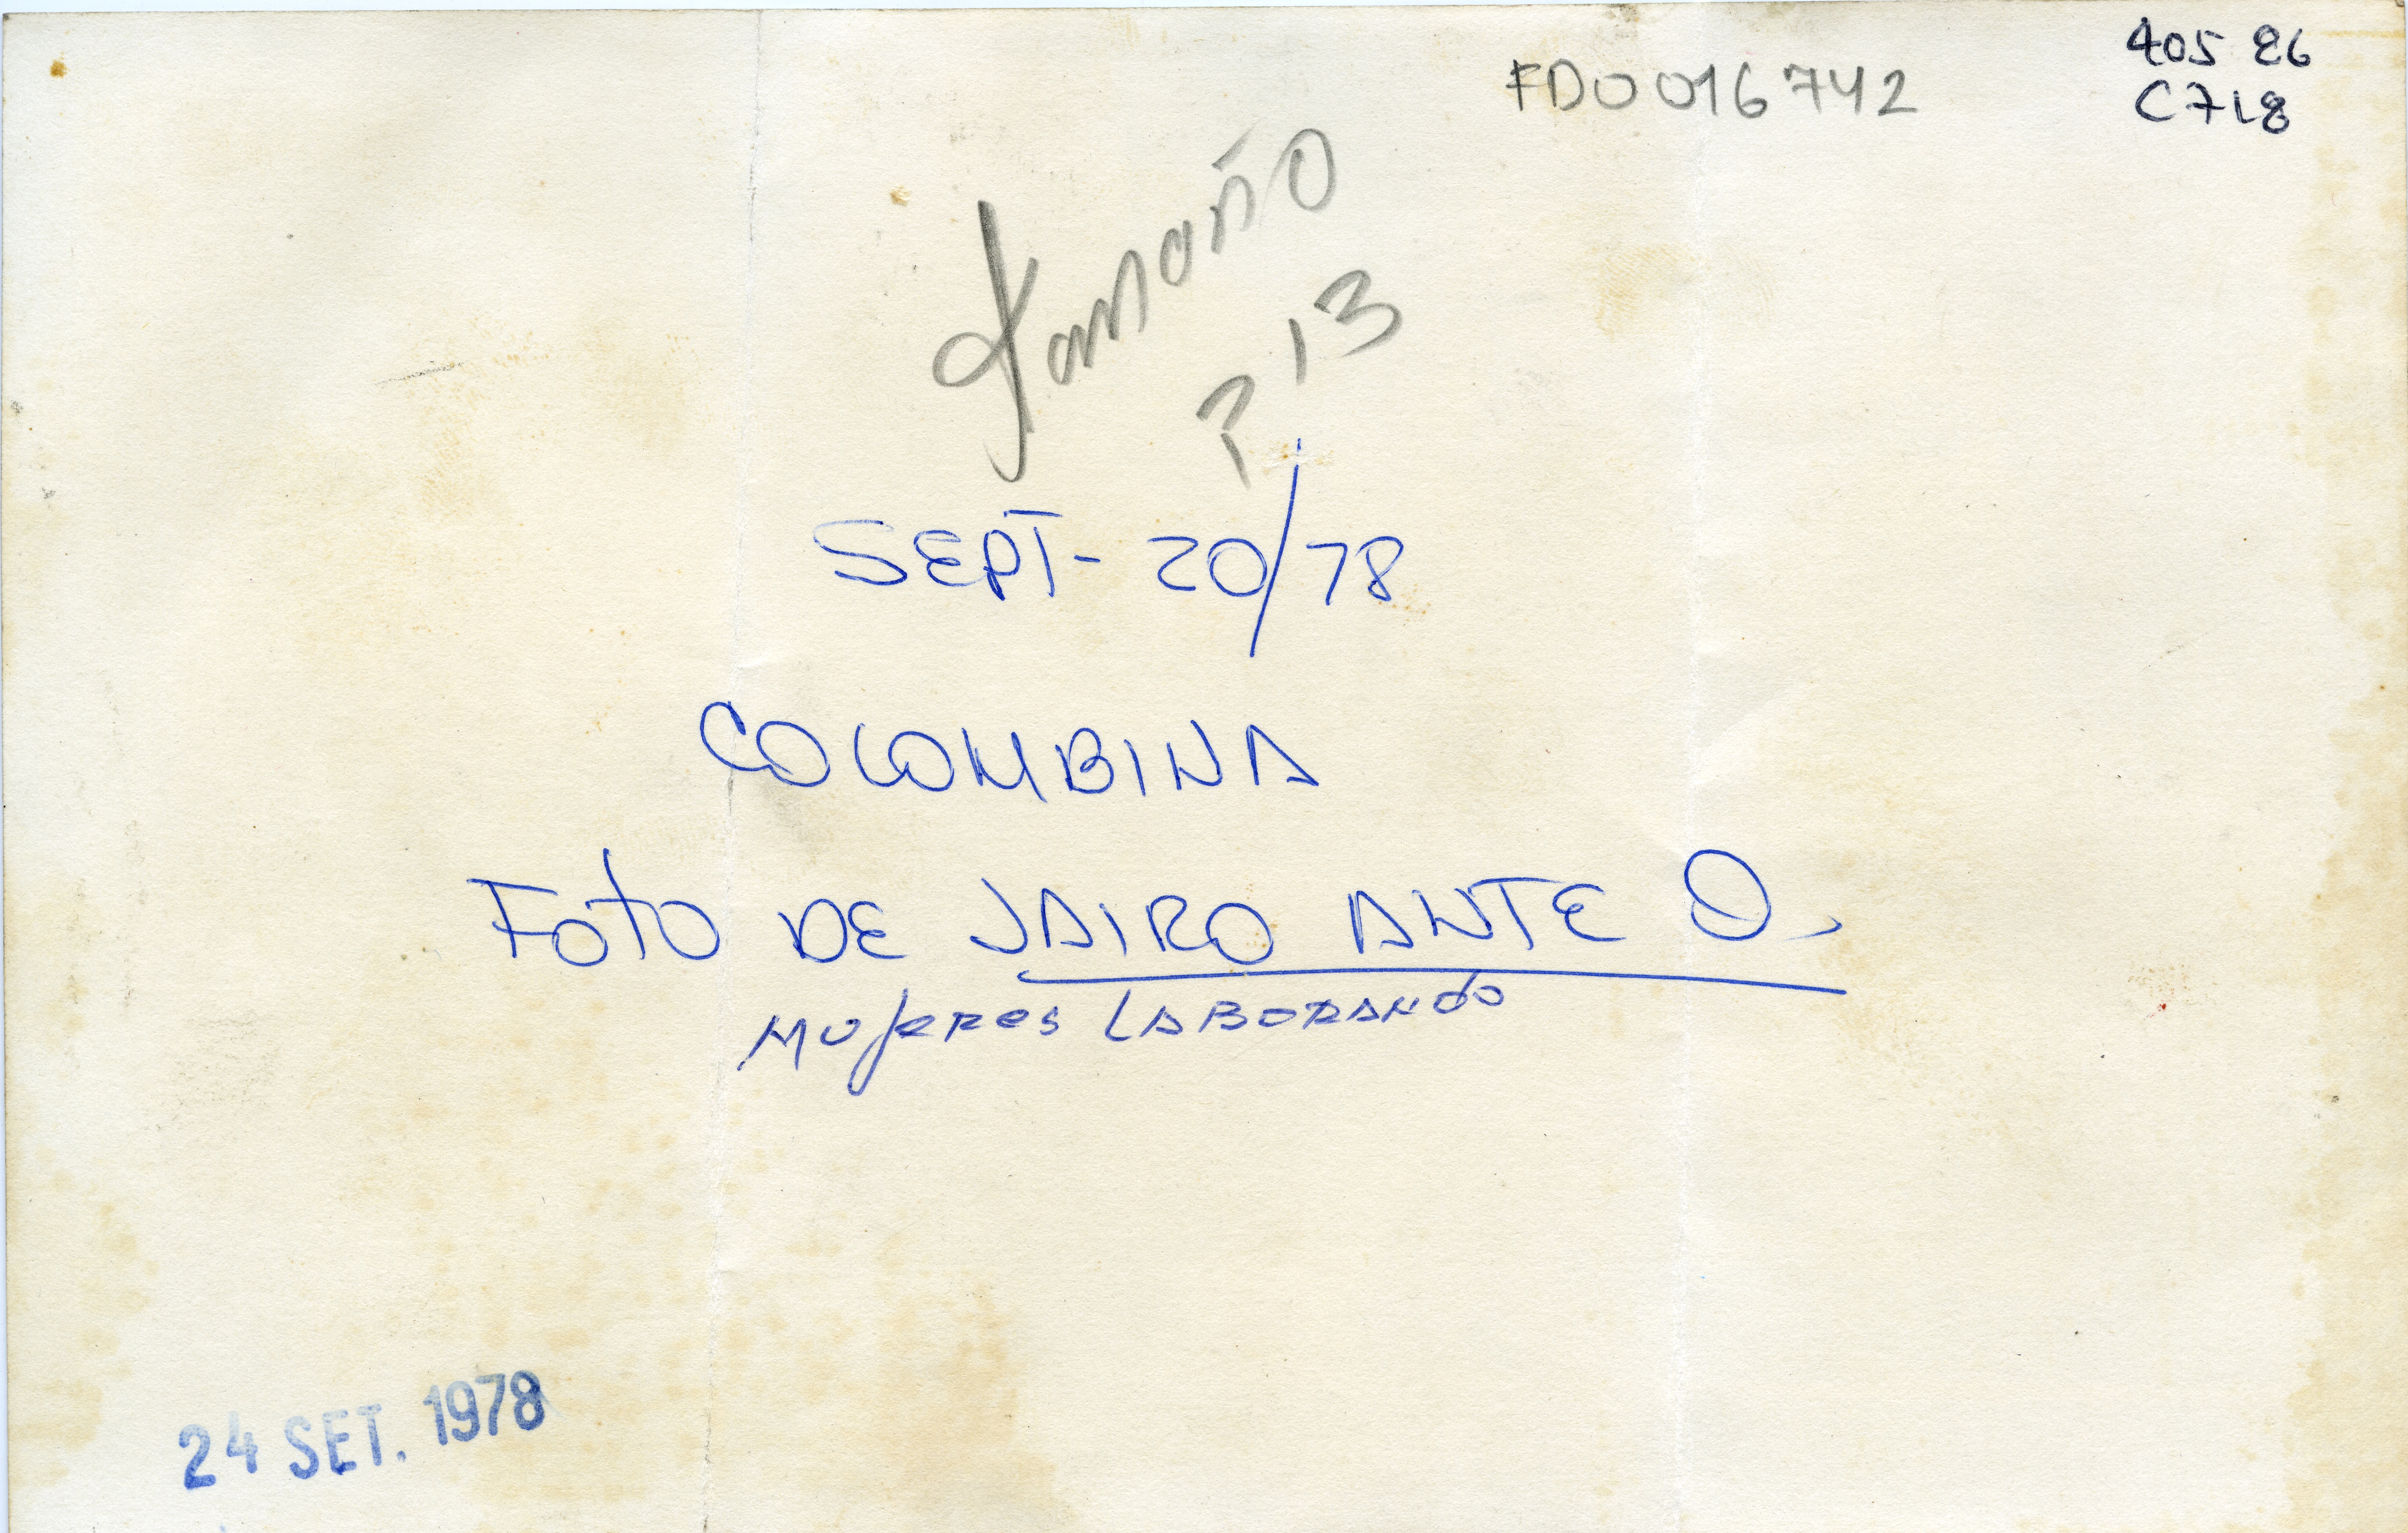 405 86
C718
FD0016742
Tamaño
P 13
SEPT- 20/78
COLOMBINA
FOTO DE JAIRO ANTE O.
MUJERES LABORANDO
24 SET. 1978